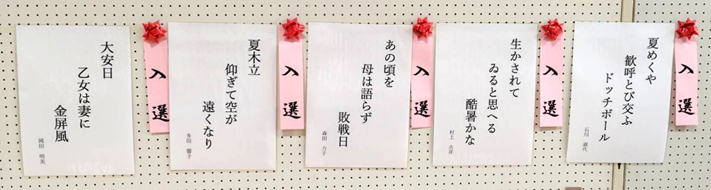 夏めくや
歓呼とび交ふ
ドッチボール
入選
生かされて
ゐると思へる
酷暑かな
村上
入選
あの頃を
母は語らず
敗戦日
森田
入選
夏木立
仰ぎて空が
遠くなり
入選
大安日
乙女は妻に
金屏風
岡田 明美
入選